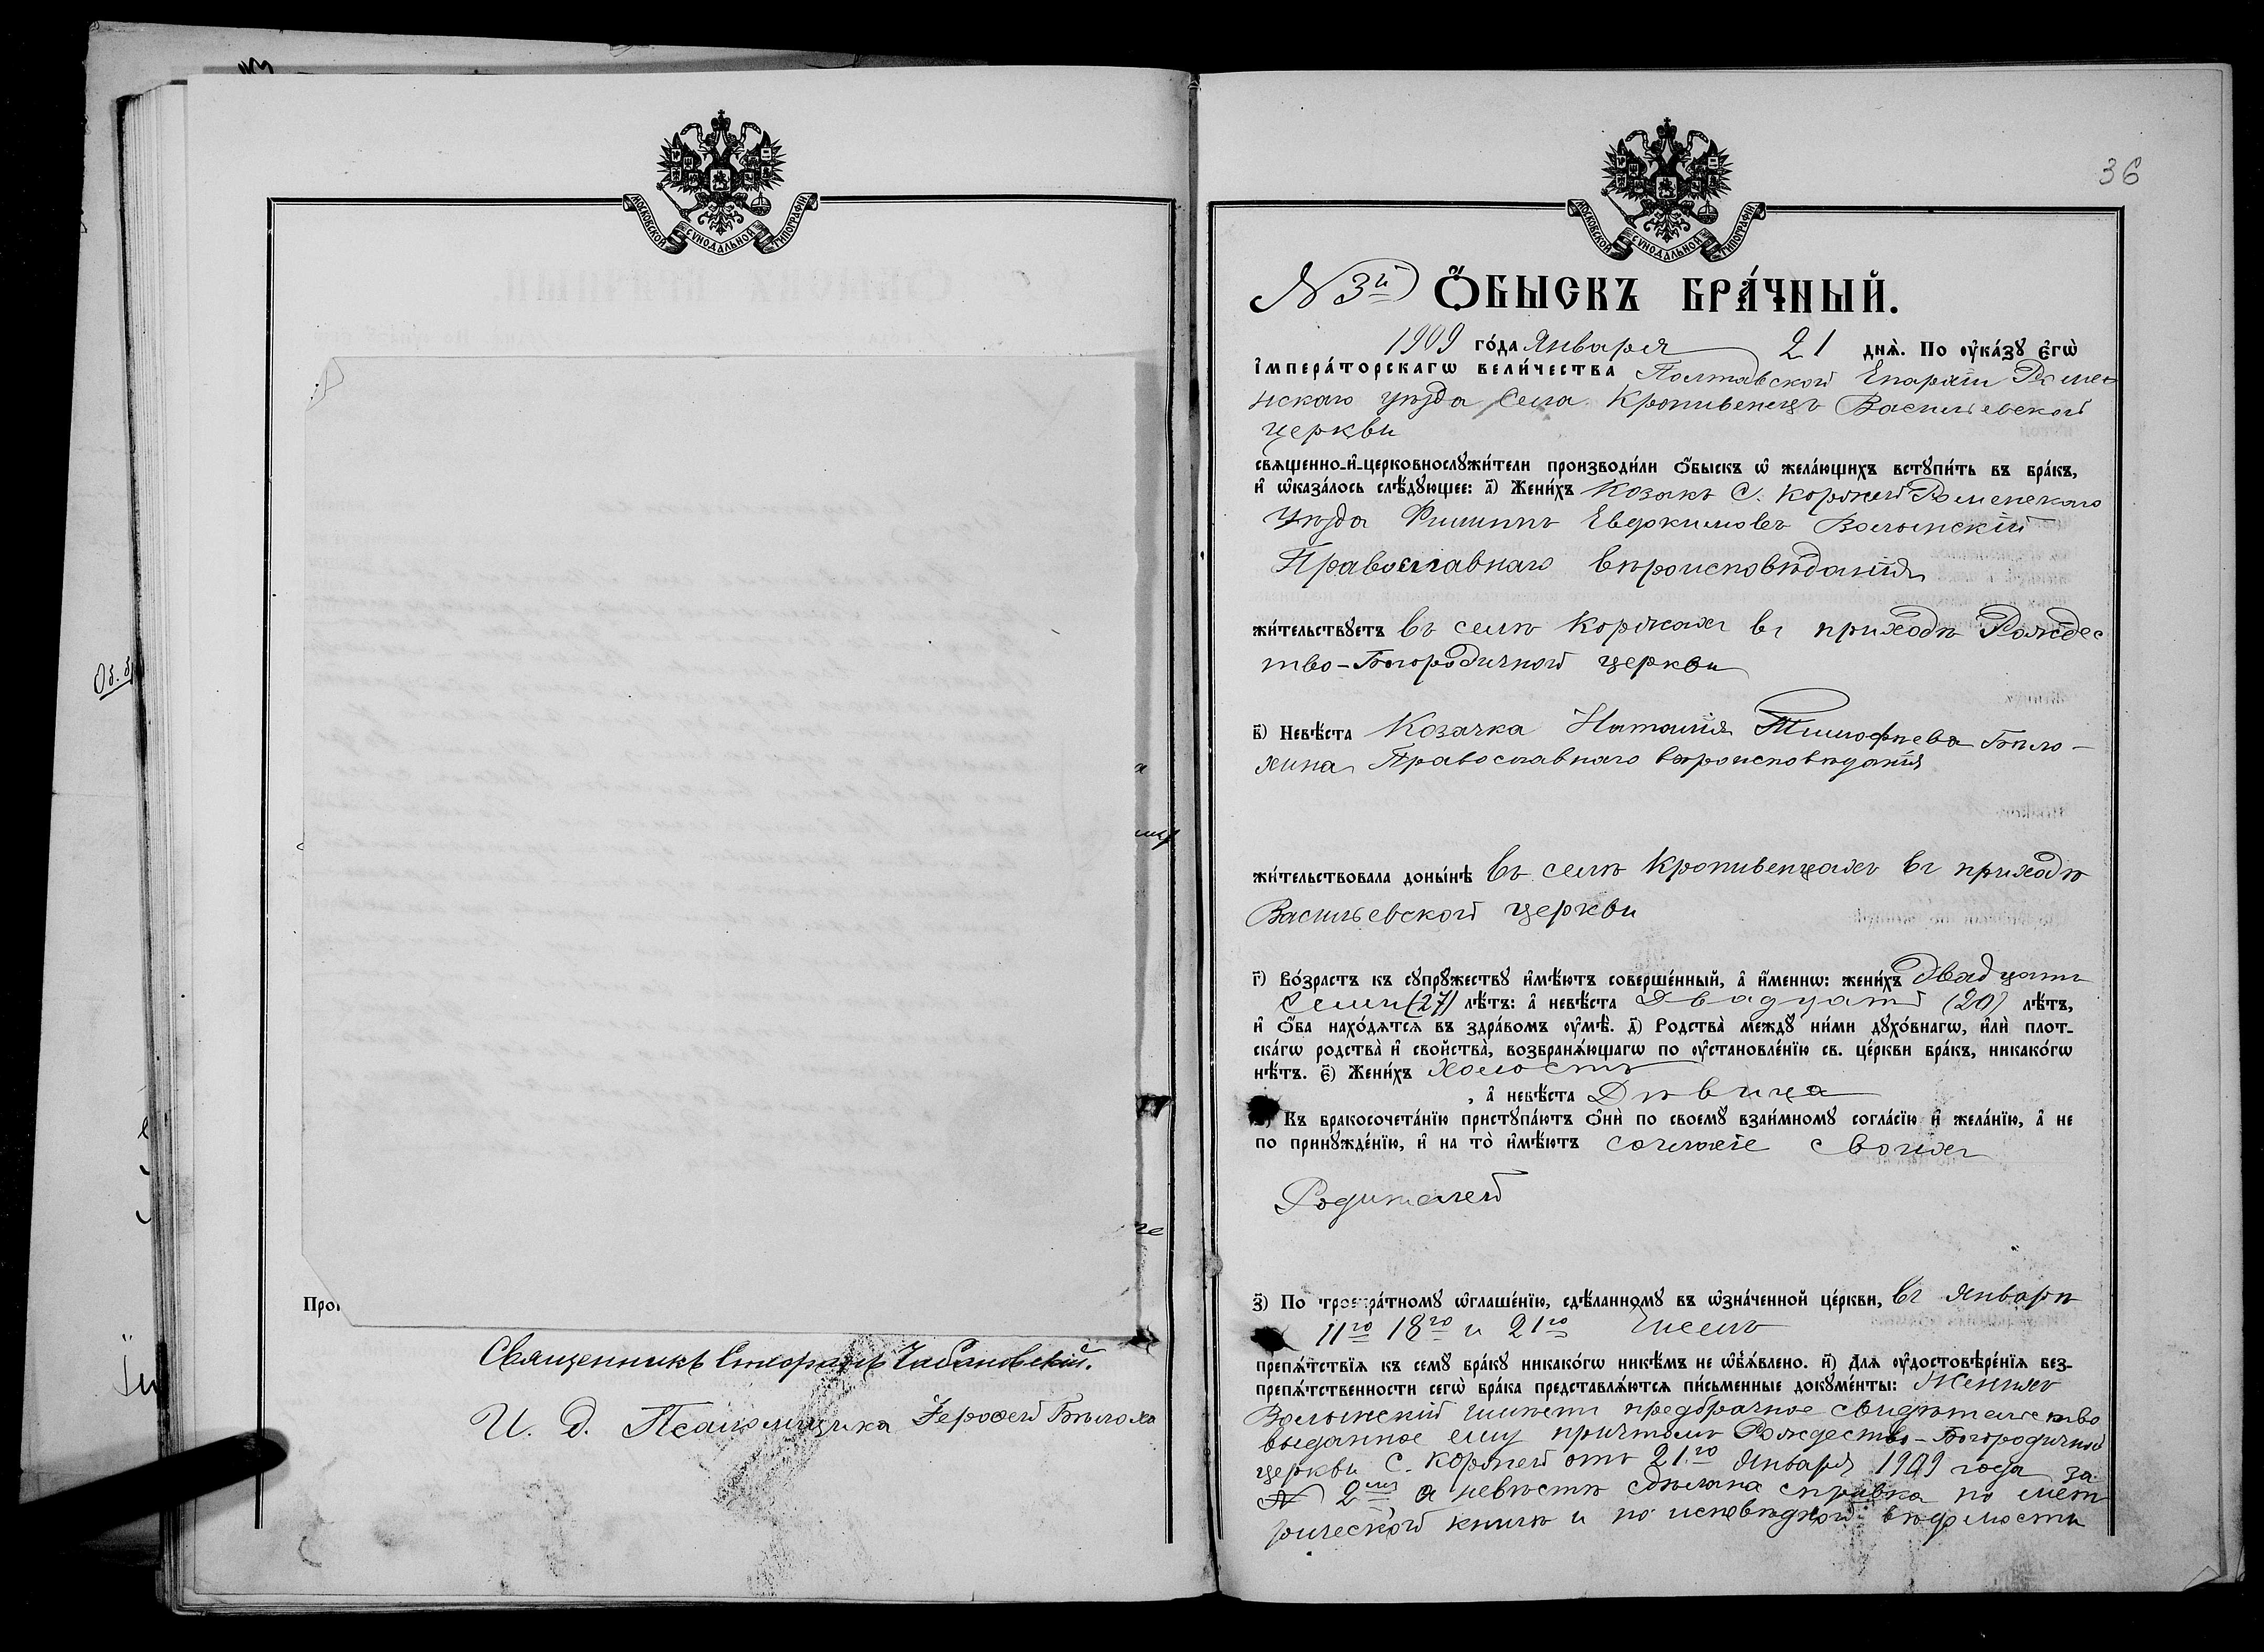 МОСКОВСКОЙ СѴНОДАЛЬНОЙ ТИПОГРАФІИ
Священникъ Чабановскій.
И. д. Псаломщика Іероѳей Бѣлоха
36
МОСКОВСКОЙ СѴНОДАЛЬНОЙ ТИПОГРАФІИ
N 3й Ѻ҆БЫСКЪ БРА́ЧНЫЙ.
1909 го́да Января 21 днѧ̀. По ᲂу҆ка́зꙋ є҆гѡ̀
і҆мпера́торскагѡ вели́чества Полтавской Епархіи Ромен
нскаго уѣзда Села Кропивенецъ Васильевской
церкви
свѧщенно-и҆-церковнослꙋжи́тели производи́ли ѻ҆́быскъ ѡ҆ жела́ющихъ встꙋпи́ть въ бра́къ,
и҆ ѡ҆каза́лось слѣ́дꙋющее: а҃) Жени́хъ Козакъ С. Коржей Роменскаго
Уѣзда Филиппъ Евдокимовъ Волынскій
Православнаго вѣроисповѣданія
жи́тельствꙋетъ въ селѣ Коржахъ въ приходѣ Рождес
тво-Богородичной церкви
в҃) Невѣ́ста Козачка Наталія Тимофѣева Бѣло-
хина Православнаго вѣроисповѣданія
жи́тельствовала доны́нѣ въ селѣ Кропивенцахъ въ приходѣ
Васильевской церкви
г҃) Во́зрастъ къ сꙋпрꙋ́жествꙋ и҆мѣ́ютъ соверше́нный, а҆ и҆́менно: жени́хъ двадцать
семь (27) лѣ́тъ: а҆ невѣ́ста Двадцать (20) лѣ́тъ,
и҆ ѻ҆́ба нахо́дѧтсѧ въ здра́вомъ ᲂу҆мѣ̀. д҃) Родства̀ междꙋ̀ ни́ми дꙋхо́внагѡ, и҆лѝ плот-
ска́гѡ родства̀ и҆ свойства̀, возбранѧ́ющагѡ по ᲂу҆становле́нїю св. це́ркви бра́къ, никако́гѡ
нѣ́тъ. є҃) Жени́хъ Холостъ
, а҆ невѣ́ста Дѣвица
) Къ бракосочета́нїю пристꙋпа́ютъ ѻ҆нѝ по своемꙋ̀ взаи́мномꙋ согла́сїю и҆ жела́нїю, а҆ не
по принꙋжде́нїю, и҆ на то̀ и҆мѣ́ютъ согласіе своихъ
Родителей
з҃) По троекра́тномꙋ ѡ҆глаше́нїю, сдѣ́ланномꙋ въ ѡ҆зна́ченной це́ркви, въ Январѣ
11го 18го и 21го Числъ
препѧ́тствїѧ къ семꙋ̀ бра́кꙋ никако́гѡ никѣ́мъ не ѡ҆бъѧ́влено. и҃) Длѧ ᲂу҆достовѣре́нїѧ без-
препѧ́тственности сегѡ̀ бра́ка представлѧ́ютсѧ пи́сьменные докꙋме́нты: Женихъ
Волынскій имѣетъ предбрачное свидѣтельство
выданное ему причтомъ Рождество-Богородичной
церкви С. Коржей отъ 21го Января 1909 года за
N 2мъ а невѣстѣ сдѣлана справка по мет
рической книгѣ и по исповѣдной вѣдомости